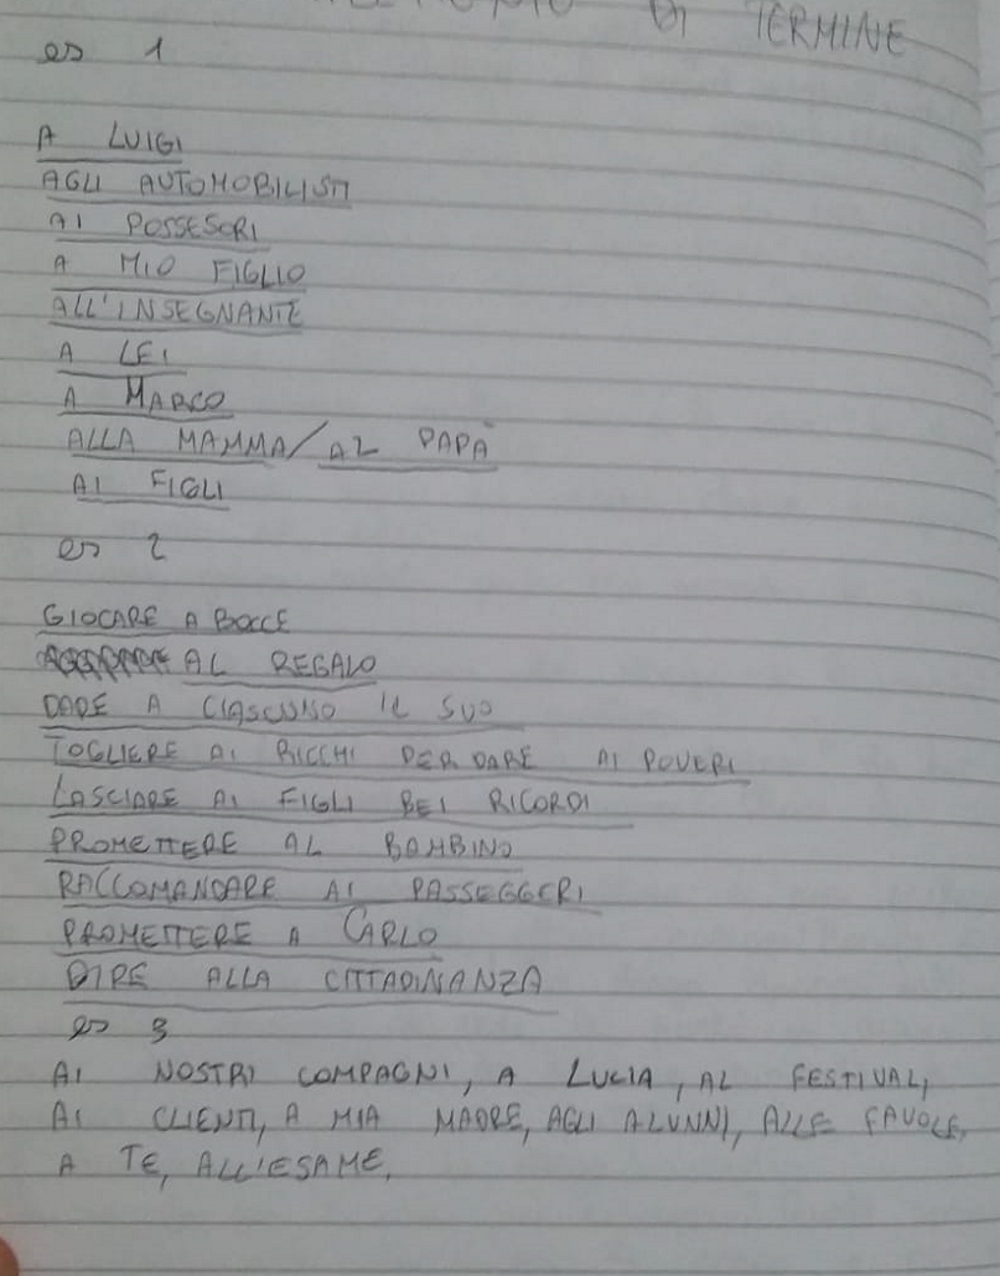 DI TERMINE
es 1
A LUIGI
AGLI AUTOMOBILISTI
AI POSSESORI
A MIO FIGLIO
ALL'INSEGNANTE
A LEI
A MARCO
ALLA MAMMA/AL PAPÀ
AI FIGLI
es 2
GIOCARE A BOCCE
AL REGALO
DARE A CIASCUNO IL SUO
TOGLIERE AI RICCHI PER DARE AI POVERI
LASCIARE AI FIGLI BEI RICORDI
PROMETTERE AL BAMBINO
RACCOMANDARE AI PASSEGGERI
PROMETTERE A CARLO
DIRE ALLA CITTADINANZA
es 3
AI NOSTRI COMPAGNI, A LUCIA, AL FESTIVAL,
AI CLIENTI, A MIA MADRE, AGLI ALUNNI, ALLE FAVOLE,
A TE, ALL'ESAME,